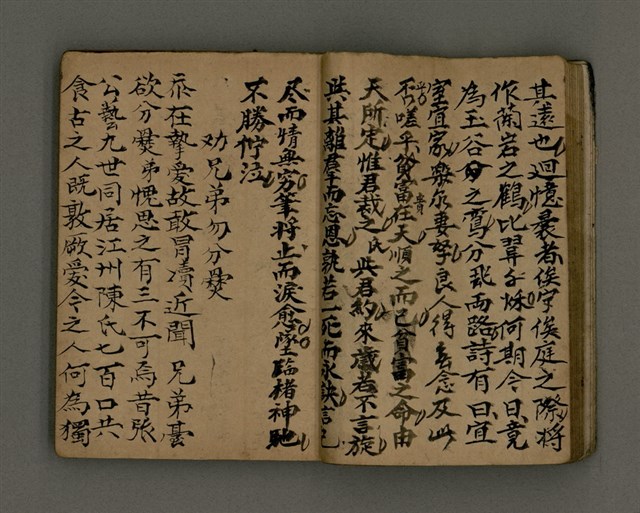 其遠也迴憶曩者俟宇俟庭之際將
作蘭岩之鶴比翼千秋何期今日竟
為玉谷之鸞分飛両路詩有曰宜
室宜家樂尔妻孥良人得無念及此
否嗟乎貧富在天順之而已貧富之命由
天所定惟君裁之此君約來歲若不言旋
與其離羣而忘恩孰若一死而永訣言已
尽而情無穷筆將止而淚愈墜臨楮神馳
不勝佇泣
劝兄弟勿分爨
忝在摯愛故敢冒凟近聞兄弟甚
欲分爨弟愰思之有三不可焉昔張
公藝九世同居江州陳氏七百口共
食古之人既敦歐愛今之人何為獨